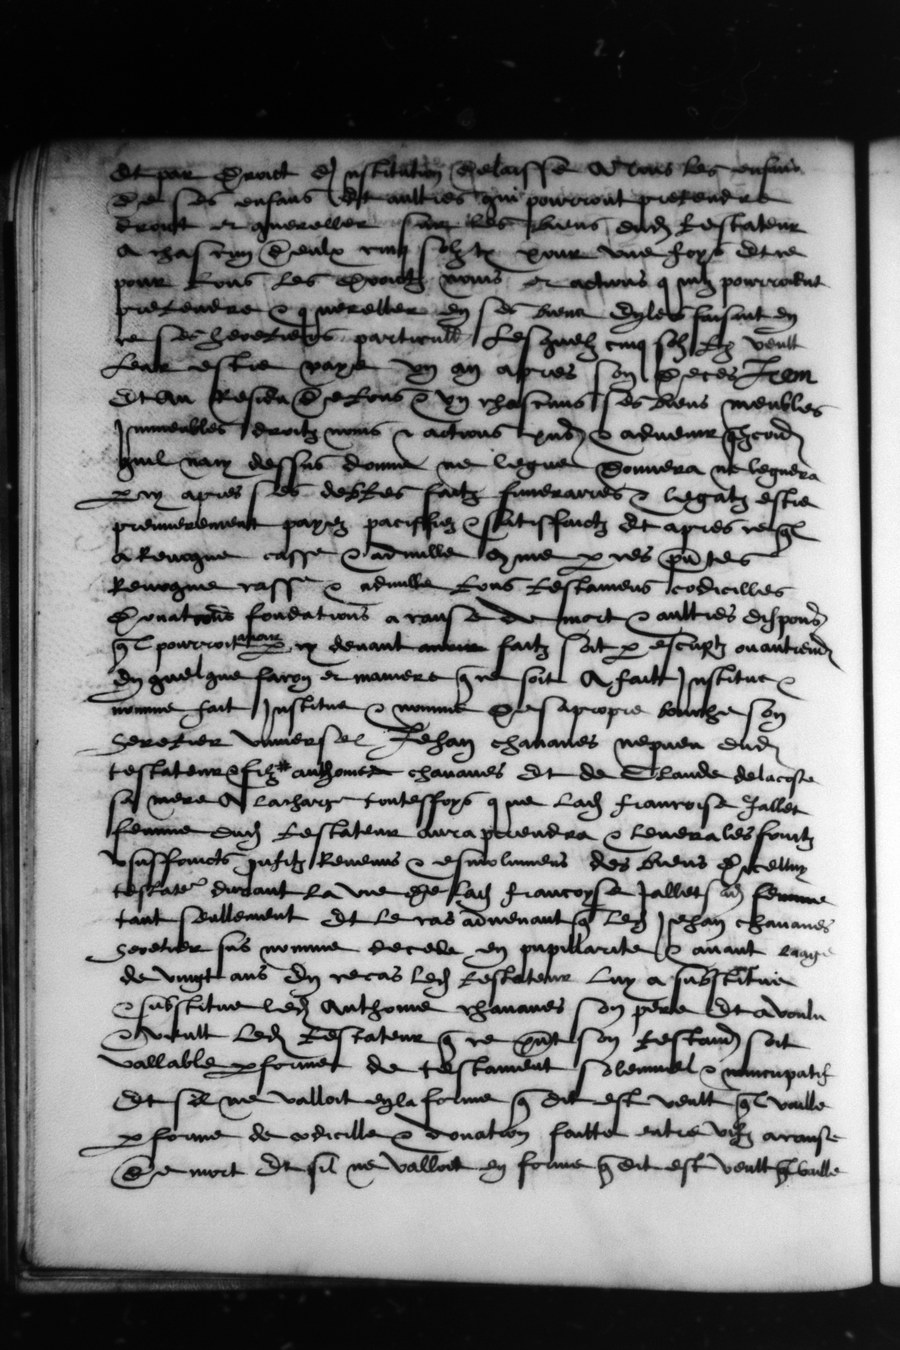 Et par droict dinstitution delaisse a tous les enfans
de ses enfans et aultres qui pourroit pretendre
droit et quereller sur les biens dud testateur
a chascun deulx cinq solz tz pour une foys et ce
pour tous les droictz noms et actions quilz pourroient
pretendre & quereller en ses biens en les faisant en
ce ses heretiers particull lesquelz cinq solz tz veult
leur estre paye un an apres son deces Item
Et au residu de tous & un chascuns ses biens meubles
Immeubles droitz noms & actions pns & advenir
quil nay dessus donne ne legue donnera ne leguera
cy apres ses debtes faitz funeraires & legatz estre
premierement payez paciffiez & satisfaictz Et apres ce quil
a revoque casse & adnulle comme par ces pntes
revoque casse & adnulle tous testamens codicilles
donations fondations a cause de mort & aultres dispons
ql pourroit avoir cy devant faitz soit p escriptz ou autrement
En quelque facon et maniere q ce soit A fait Institue &
nomme fait Institue & nomme de sa propre bouche son
heretier universel Jehan chavanes nepveu dud
testateur & filz anthoine chavanes Et de Claude delacoste
sa mere A la charge touteffoys que lad francoise Jallet
femme dud testateur aura prendra & levera les fruitz
usuffruicts prufitz revenus & esmolumens des biens dicelluy
testater durant la vie de lad francoyse Jallet sad femme
tant seullement Et le cas advenant q led Jehan chavanes
heretier sus nomme decede en pupillarite & avant laage
de vingt ans En ce cas led testateur luy a substitue
& substitue led Anthoine chavanes son pere Et a voulu
& veult led testateur q ce pnt son testamt soit
vallable p forme de testament solemnel & nuncupatif
Et sil ne valloit en la forme q dit est veult ql vaille
p forme de codicille & donation faitte entre vifz a cause
de mort Et sil ne valloit en forme q dit est veult ql vaille